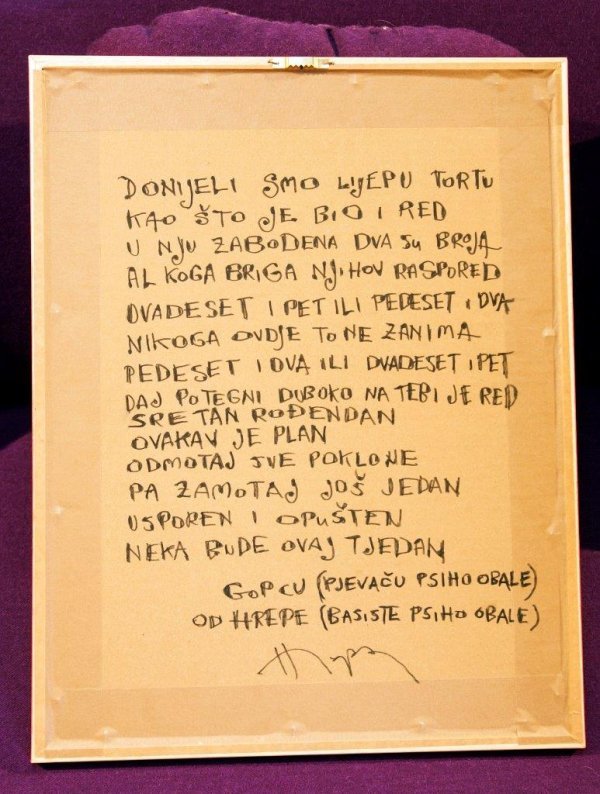 DONIJELI SMO LIJEPU TORTU
KAO ŠTO JE BIO I RED
U NJU ZABODENA DVA SU BROJA
AL KOGA BRIGA NJIHOV RASPORED
DVADESET I PET ILI PEDESET I DVA
NIKOGA OVDJE TO NE ZANIMA
PEDESET I DVA ILI DVADESET I PET
DAJ POTEGNI DUBOKO NA TEBI JE RED
SRETAN ROĐENDAN
OVAKAV JE PLAN
ODMOTAJ SVE POKLONE
PA ZAMOTAJ JOŠ JEDAN
USPOREN I OPUŠTEN
NEKA BUDE OVAJ TJEDAN
GOPCU (PJEVAČU PSIHO OBALE)
OD HREPE (BASISTE PSIHO OBALE)